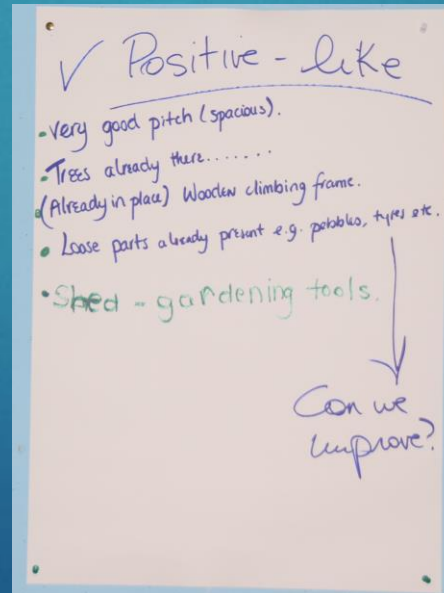 ✓ Positive - like
• Very good pitch (spacious).
• Trees already there.......
• (Already in place) Wooden climbing frame.
• Loose parts already present e.g. pebbles, tyres etc.
• Shed - gardening tools.
Can we
improve?